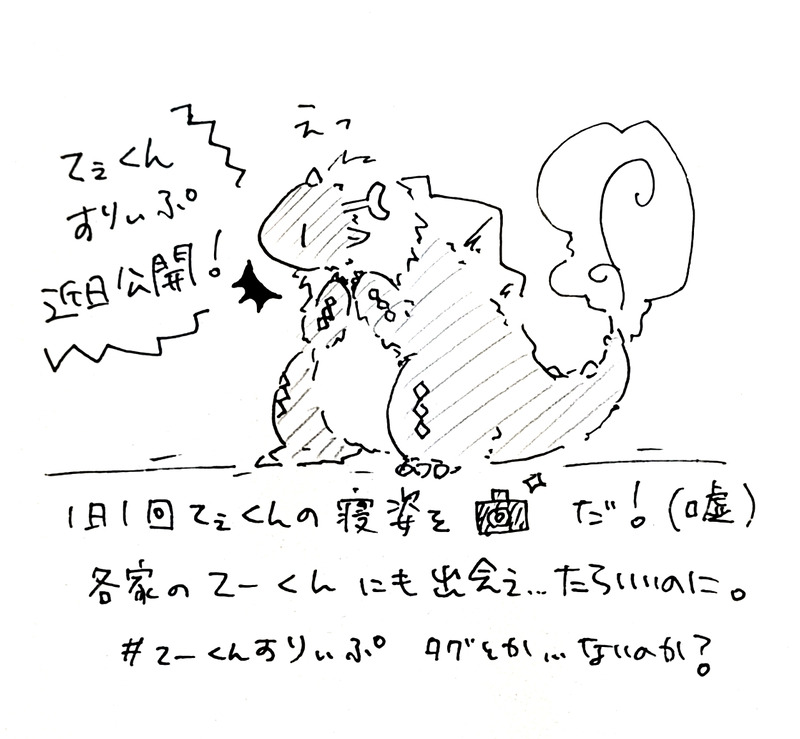 えっ
てぇくん
すりぃぷ
近日公開!
1日1回てぇくんの寝姿を だ!(嘘)
各家のてーくんにも出会え…たらいいのに。
#てーくんすりぃぷ タグとか…ないのか?